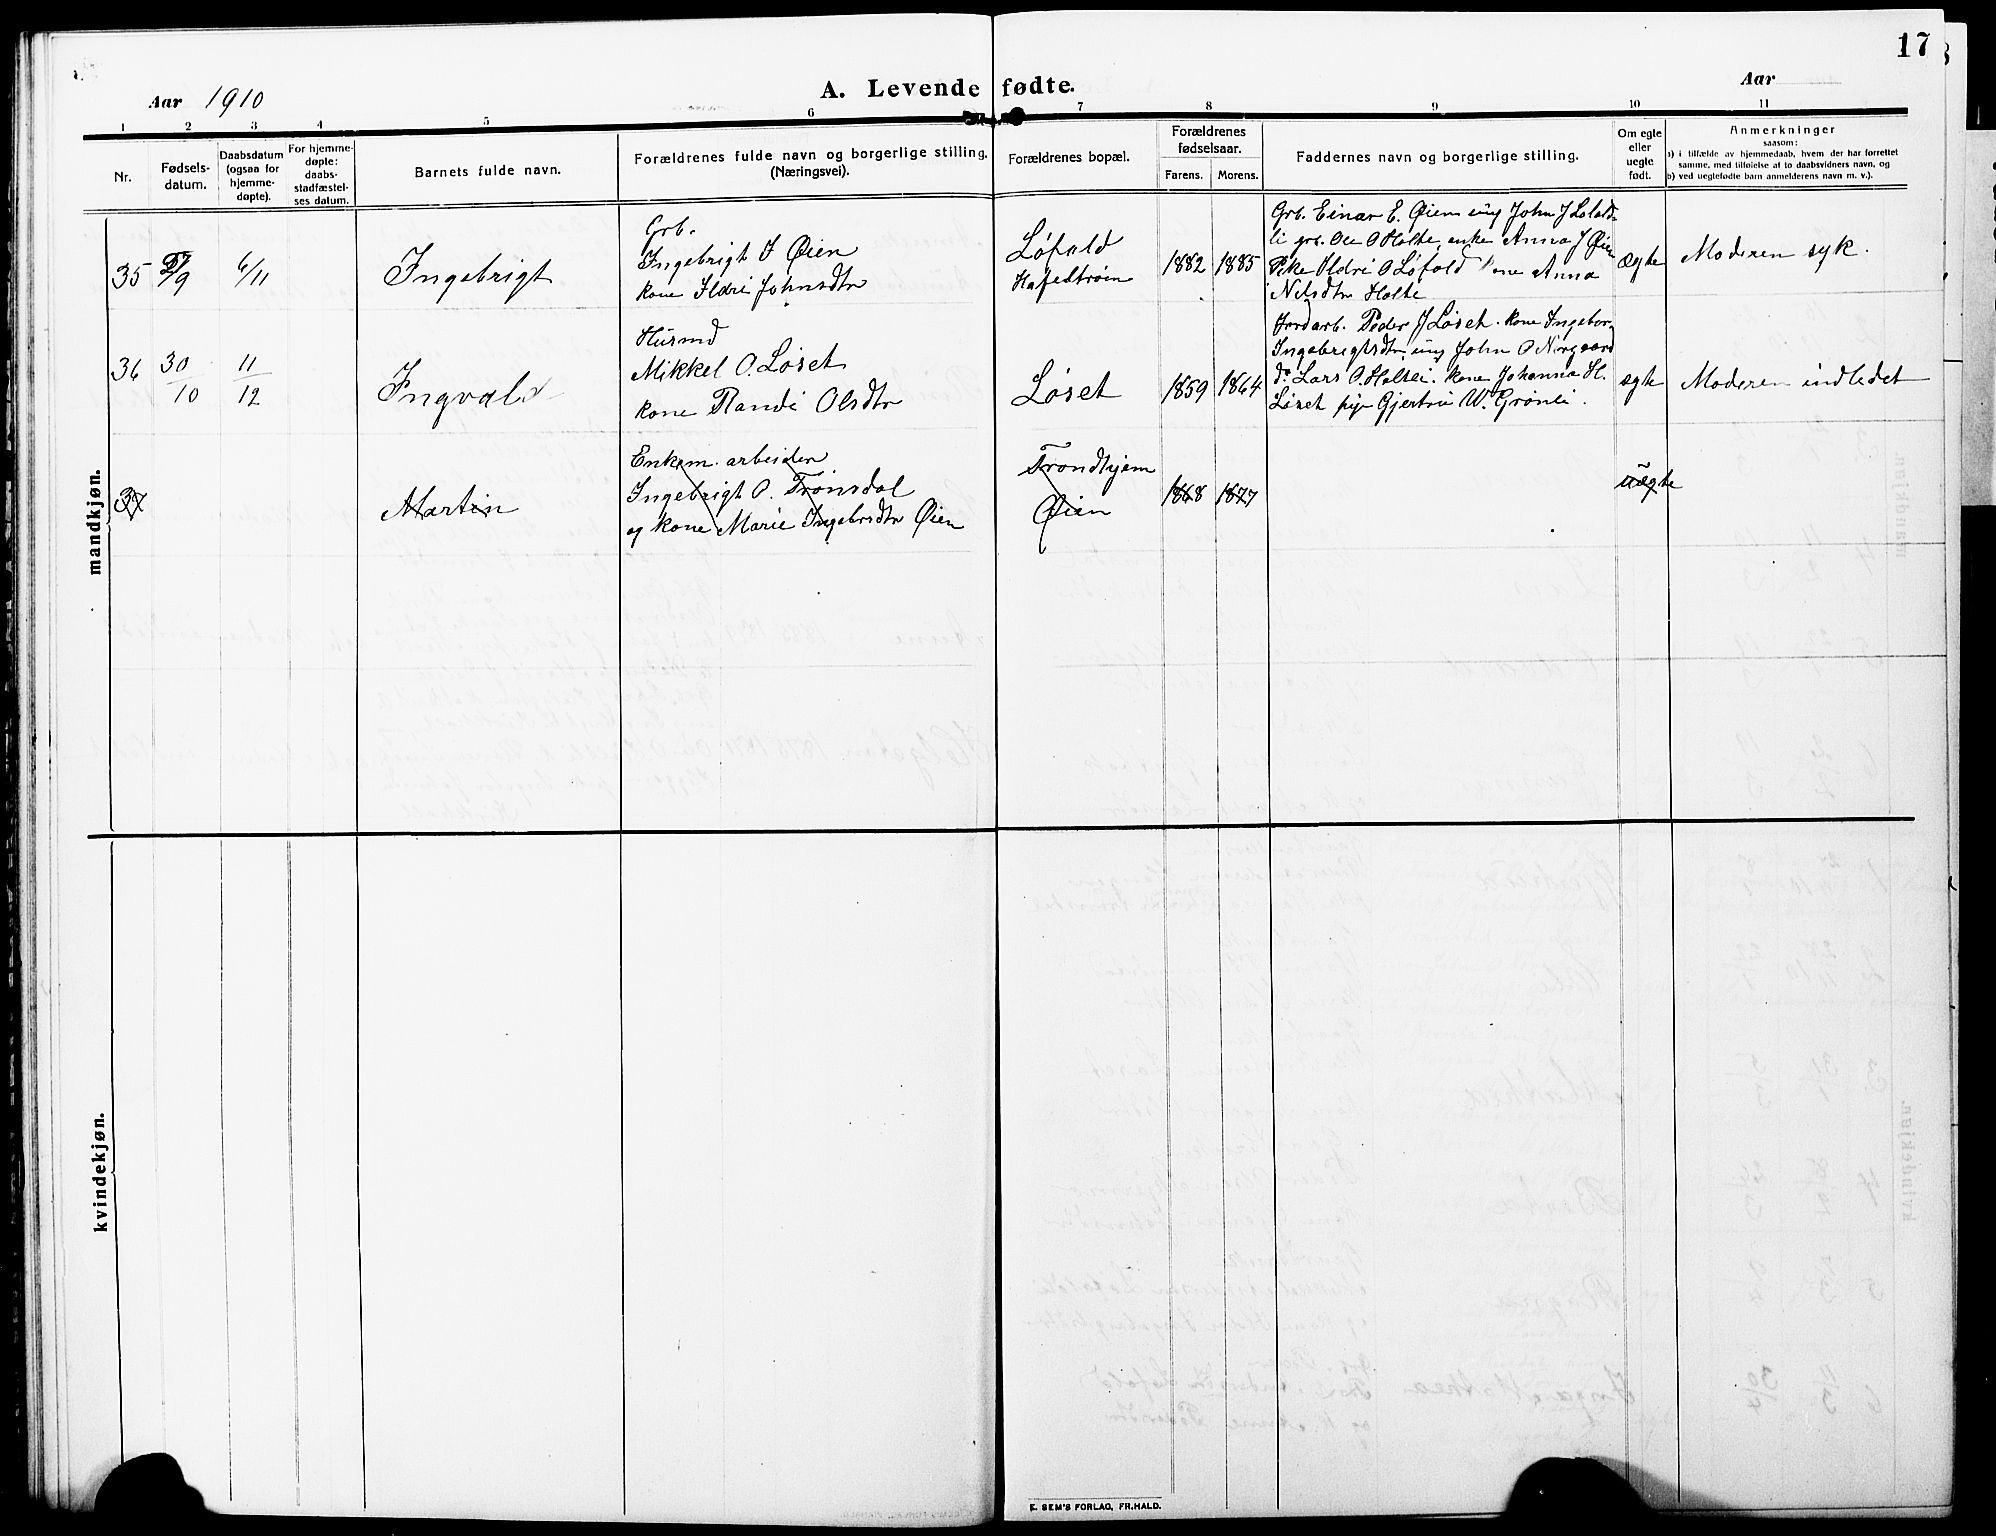 17
Aar 1910
A. Levende fødte.
Aar
1 2 3 4 5 6 7 8 9 10 11
Nr.
Fødsels-
datum.
Daabsdatum
(ogsaa for
hjemme-
døpte).
For hjemme-
døpte:
daabs-
stadfæstel-
ses datum.
Barnets fulde navn.
Forældrenes fulde navn og borgerlige stilling.
(Næringsvei).
Forældrenes bopæl.
Forældrenes
fødselsaar.
Farens. Morens.
Faddernes navn og borgerlige stilling.
Om egte
eller
uegte
født.
Anmerkninger
saasom:
a) i tilfælde av hjemmedaab, hvem der har forrettet
samme, med tilføielse af to daabsvidners navn, og
b) ved uegtefødte barn anmelderens navn m. v.).
mandkjøn.
35 27/9 6/11
Ingebrigt
Grb.
Ingebrigt J Øien
kone Ildri Johnsdtr
Løfald
1882 1885
Grb. Einar E. Øien ung John J Lofald-
li grb. Ole O Holte, enke Anna J Øien
Pike Ildri O Løfald kone Anna
Nilsdtr Holte
ægte
Moderen syk.
36 30/10 11/12
Ingvald
Husmd
Mikkel O. Løset
kone Randi Olsdtr
Løset
1859 1864
Jordarb. Peder J Løset. kone Ingebor-
Ingebrigtsdtr, ung John O Norgaard
do Lars O. Holsei. kone Johanna H.
Løset pige Gjertrui W. Grønli.
ægte
Moderen indledet
37
Martin
Enkem. arbeider
Ingebrigt O. Trønsdal
og kone Marie Ingebrsdtr Øien
Trondhjem
Øien
1868 1877
uægte
kvindekjøn.
E. SEM'S FORLAG, FR.HALD.